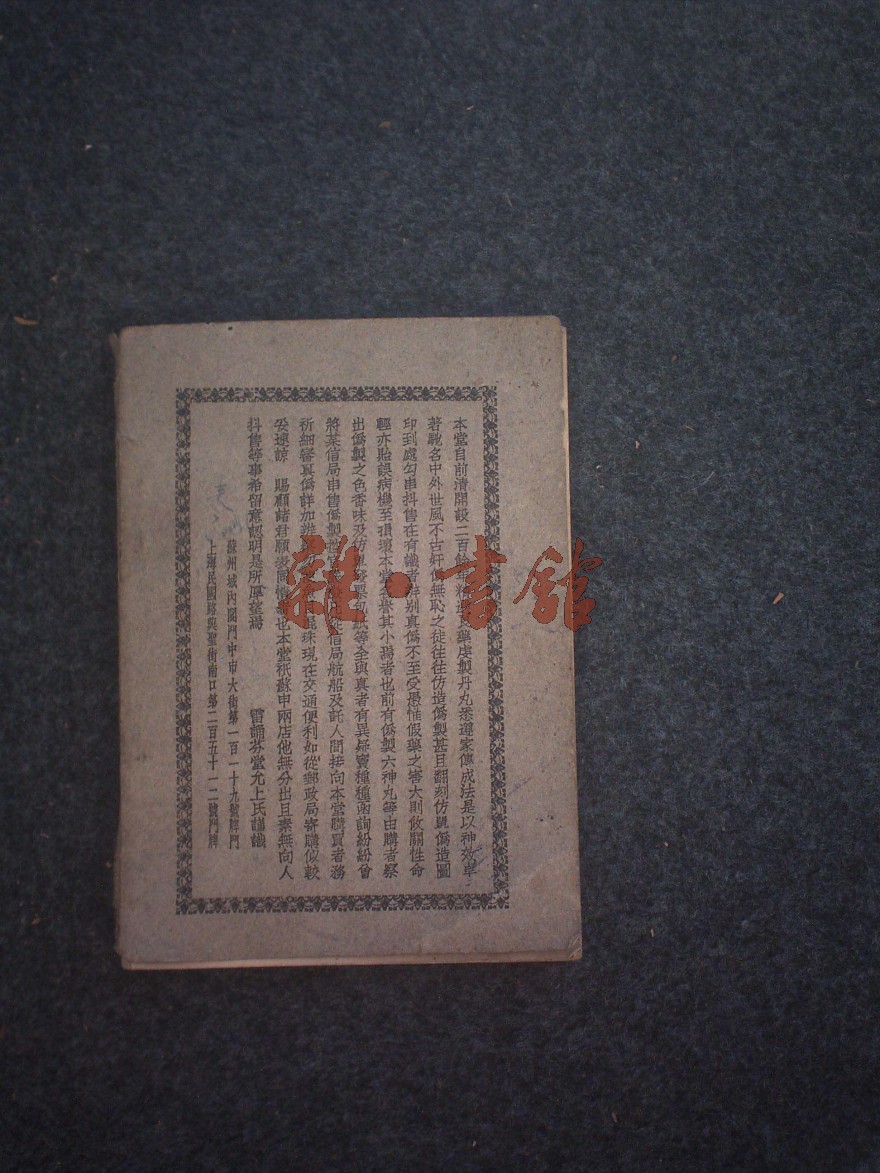 本堂自前清開設二百餘年精選藥虔製丹丸悉遵家傳成法是以神效卓
著馳名中外世風不古奸僞無恥之徒往往仿造僞製甚且翻刻仿單僞造圖
印到處勾串抖售在有識者辨别真僞不至受愚惟假藥之害大則攸關性命
輕亦貽誤病機至損壞本堂名譽其小焉者也前有僞製六神丸等由購者察
出僞製之色香味及仿單發票包紙等全與真者有異疑竇種種函詢紛紛曾
將某信局串售僞製信局航船及託人間接向本堂購買者務
祈細審真僞詳加辨混珠現在交通便利如從郵政局寄購似較
妥速諒賜顧諸君願表同情也本堂祇蘇申兩店他無分出且素無向人
抖售等事希留意認明是所厚望焉
雷誦芬堂允上氏謹識
蘇州城内閶門中市大街第一百一十九號牌門
上海民國路興聖街南口第二百五十一二號門牌
雜·書館